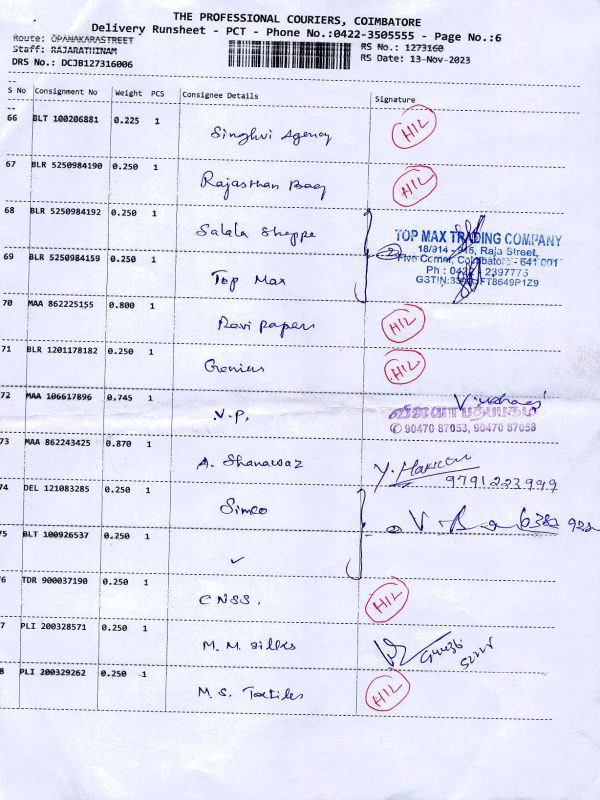 THE PROFESSIONAL COURIERS, COIMBATORE
Delivery Runsheet - PCT - Phone No.:0422-3505555 - Page No.:6
Route: OPANAKARASTREET
Staff: RAJARATHINAM
DRS No.: DCJB127316006
RS No.: 1273160
RS Date: 13-Nov-2023
S No Consignment No Weight PCS Consignee Details Signature
66 BLT 100206881 0.225 1
Singhvi Agency HIL
67 BLR 5250984190 0.250 1
Rajasthan Bag HIL
68 BLR 5250984192 0.250 1
Salala Shoppe
TOP MAX TRADING COMPANY
18/914 - 915, Raja Street,
Five Corner, Coimbatore - 641 001
Ph : 0422 2397775
69 BLR 5250984159 0.250 1
Top Max
70 MAA 862225155 0.800 1
Ravi papers HIL
71 BLR 1201178182 0.250 1
Genius HIL
72 MAA 106617896 0.745 1
V.P.
விஜயா பதிப்பகம்
90470 87053, 90470 87058
73 MAA 862243425 0.870 1
A. Shanawaz
9791223999
74 DEL 121083285 0.250 1
Simco
75 BLT 100926537 0.250 1
6 TDR 900037190 0.250 1
CNSS. HIL
7 PLI 200328571 0.250 1
M. M. silks
8 PLI 200329262 0.250 1
M. S. Textiles HIL